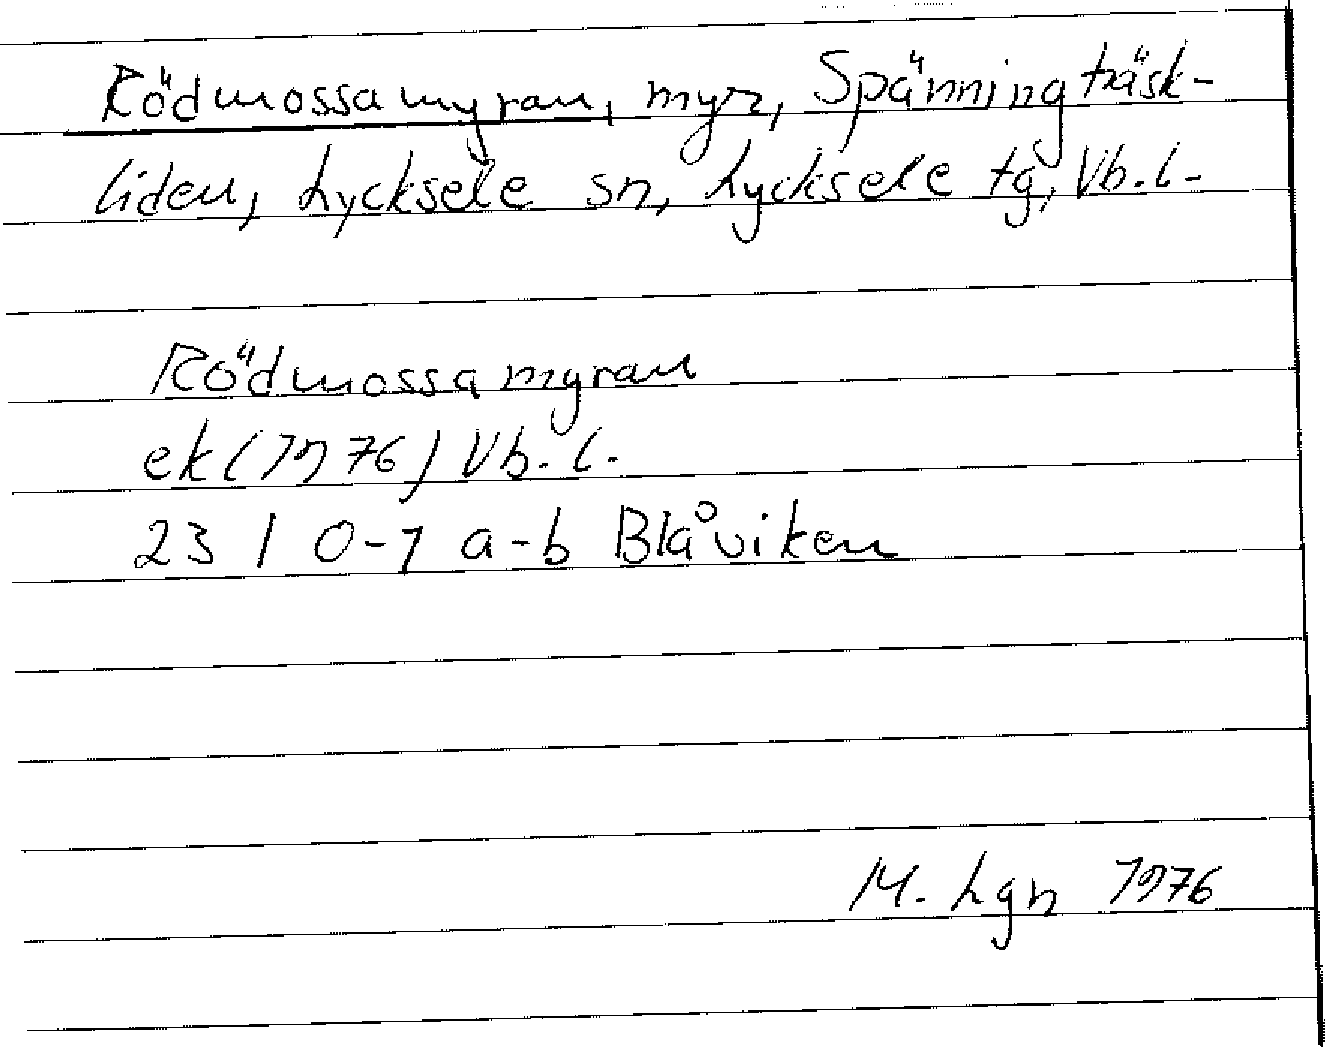 Rödmossamyran, myr, Spänningträsk-
liden, Lycksele sn, Lycksele tg, Vb.l.
Rödmossamyran
ek (1976) Vb.l.
23 I 0-1 a-b Blåviken
M. Lgn 1976